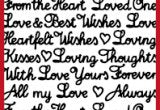 From the Heart Loved One
Love & Best Wishes Love
Heartfelt Wishes ♡ Loving
Kisses ♡ Loving Thoughts
With Love Yours Forever
All my Love ♡ Always